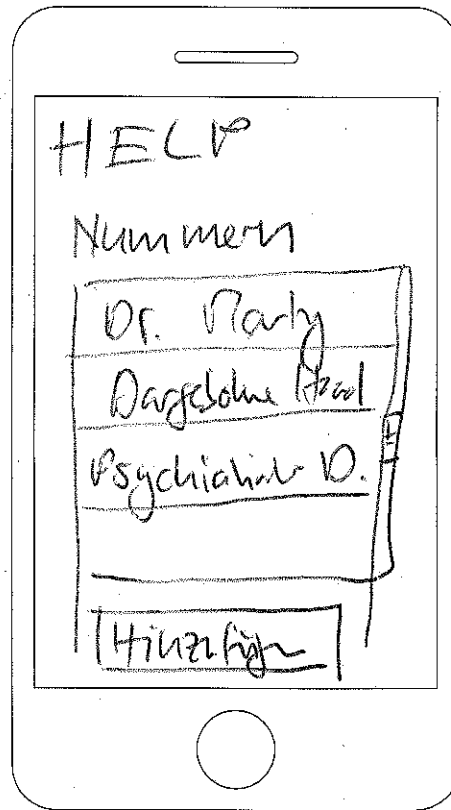 HELP
Nummern
Dr. Marty
Dargebotne Hand
Psychiatrie D.
Hinzufügen